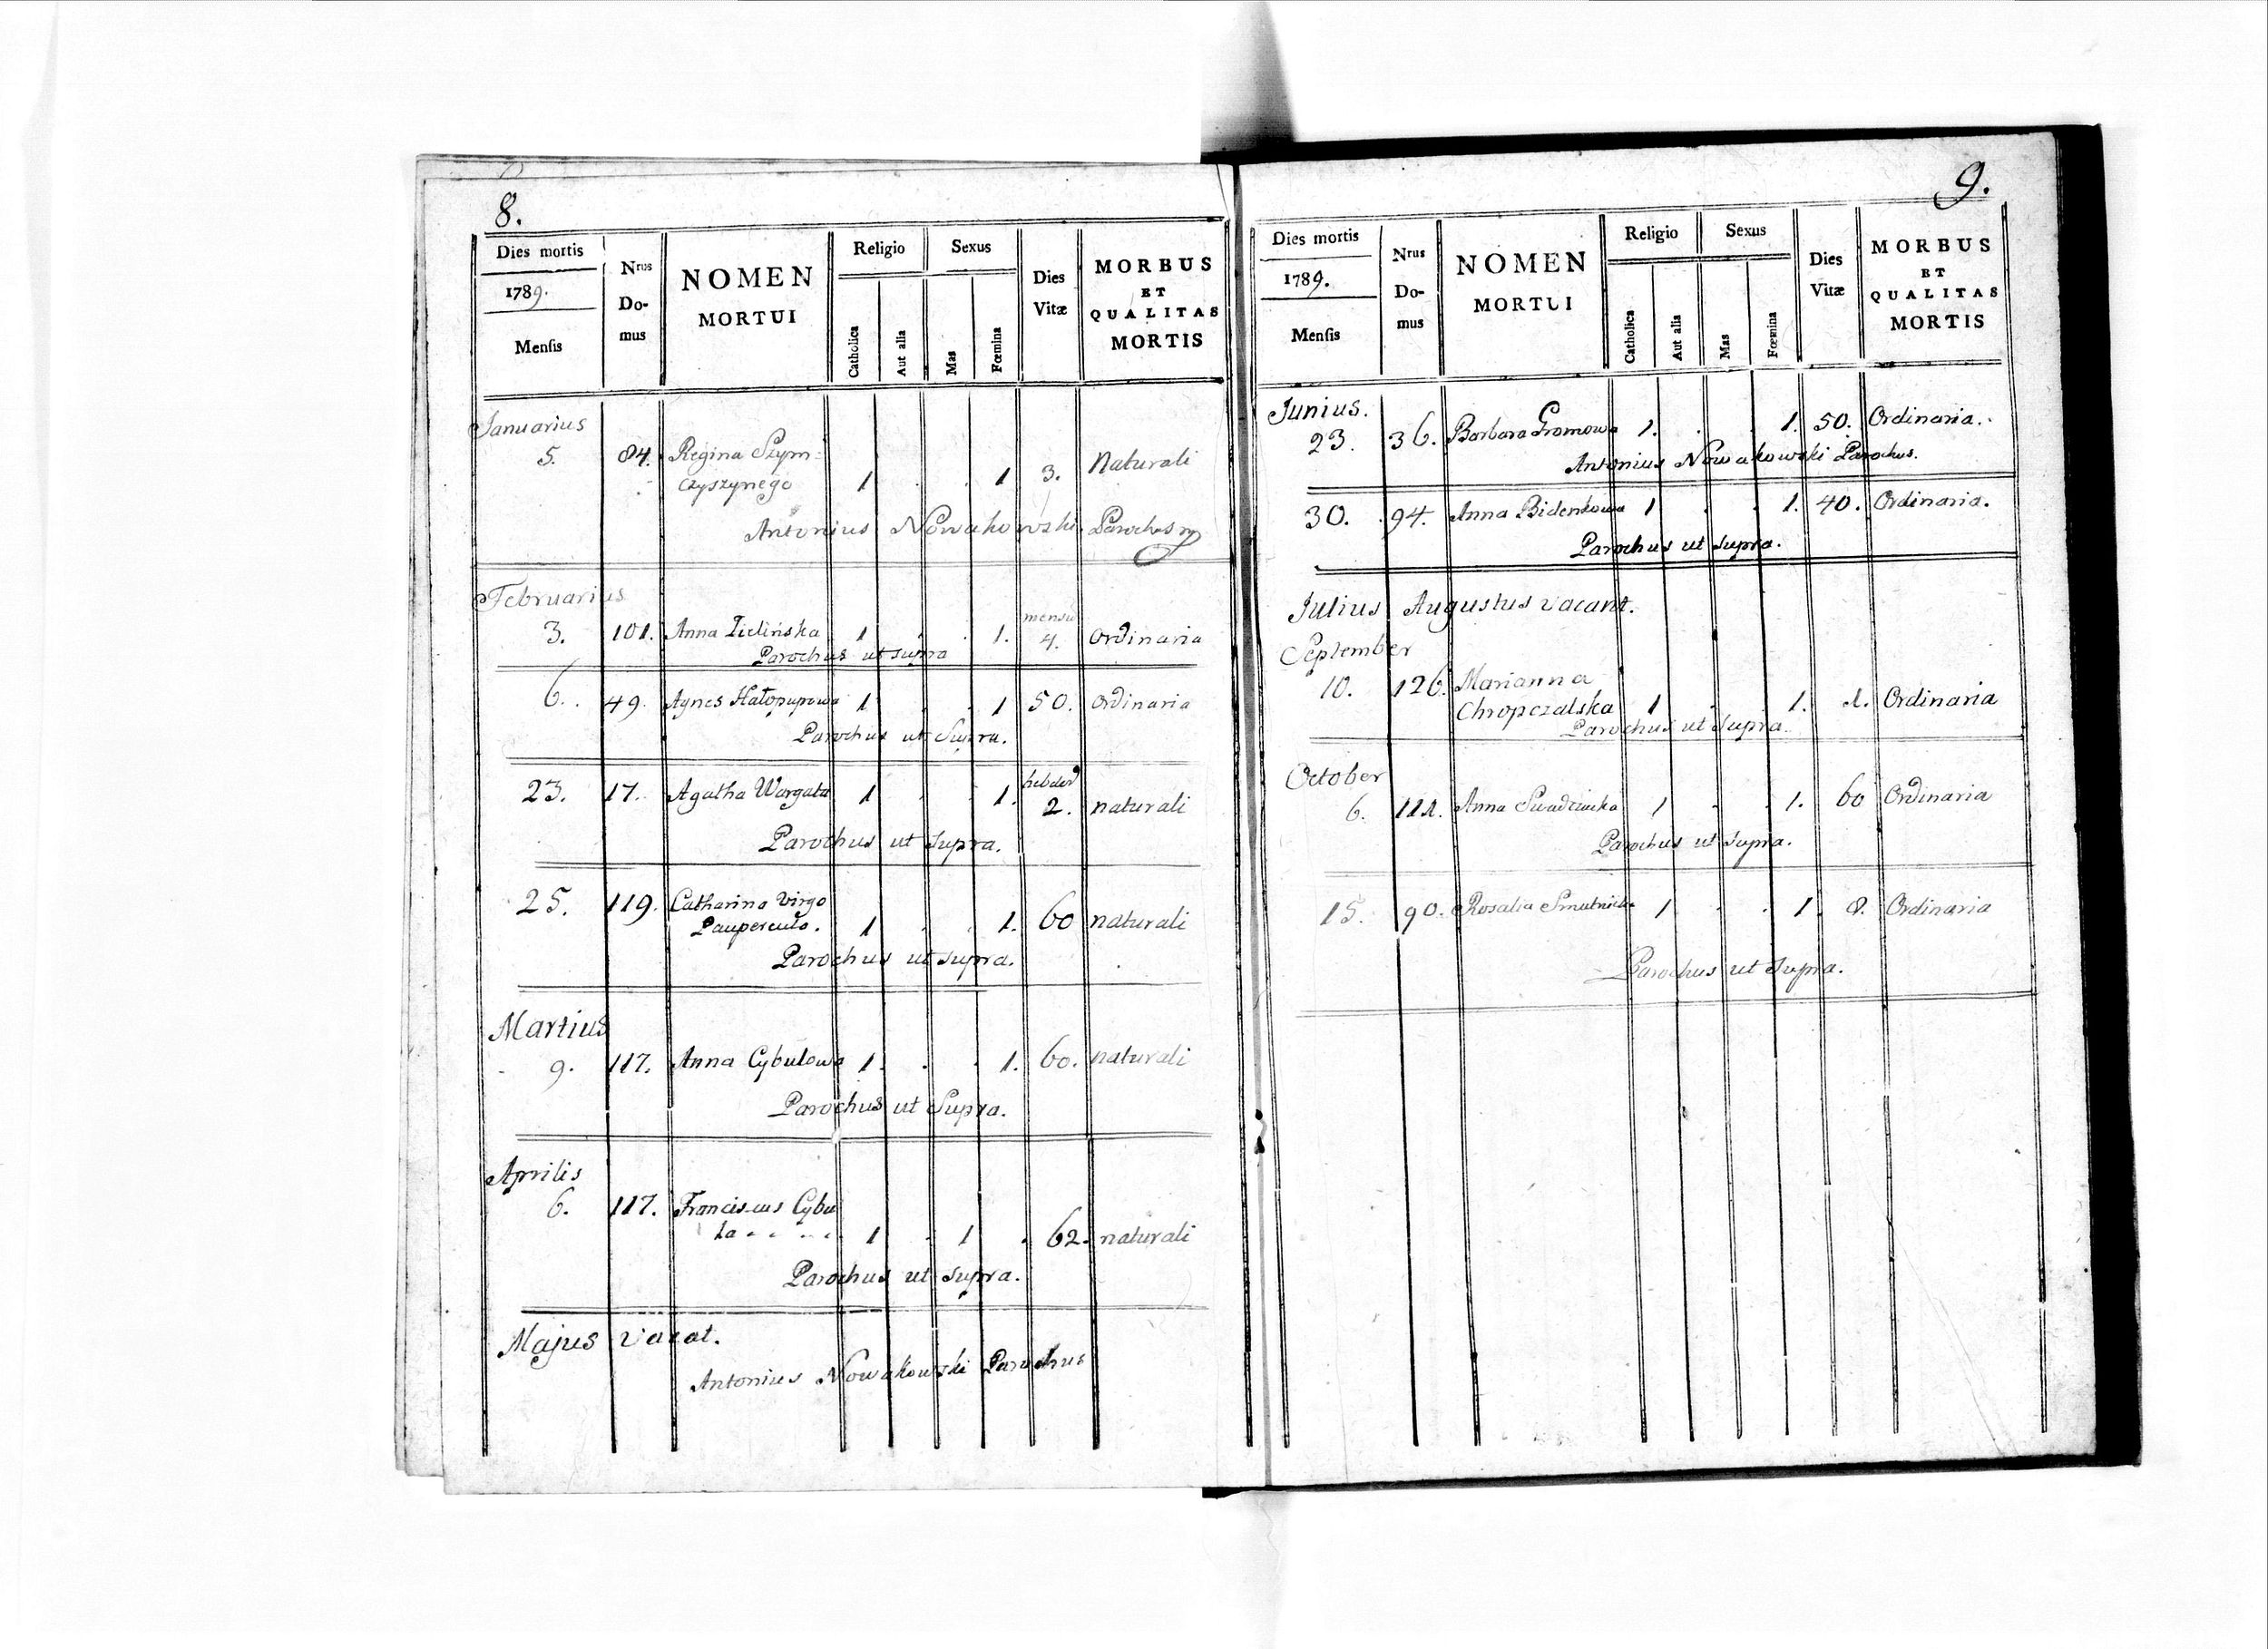 8.
Dies mortis | Nrus Do- mus | NOMEN MORTUI | Religio | Sexus | Dies Vitæ | MORBUS ET QUALITAS MORTIS
1789.
Mensis | Catholica | Aut alia | Mas | Fœmina
Januarius
5. 84. Regina Szym=
czyszynego 1 . . 1 3. Naturali
Antonius Nowakowski Parochus
Februarius
mensu
3. 101. Anna Zielińska 1 . . 1. 4. ordinaria
Parochus ut supra
6. 49. Agnes Hałopupowa 1 . . 1 50. ordinaria
Parochus ut Supra.
23. 17. Agatha Wargata 1 . . 1. hebdo 2. naturali
Parochus ut supra.
25. 119. Catharina Virgo
Paupercula. 1 . . 1. 60 naturali
Parochus ut supra.
Martius
9. 117. Anna Cybulowa 1. . . 1. 60. naturali
Parochus ut Supra.
Aprilis
6. 117. Franciscus Cybu
la 1 . 1 . 62. naturali
Parochus ut supra.
Majus vacat.
Antonius Nowakowski Parochus
9.
Dies mortis | Nrus Do- mus | NOMEN MORTUI | Religio | Sexus | Dies Vitæ | MORBUS ET QUALITAS MORTIS
1789.
Mensis | Catholica | Aut alia | Mas | Fœmina
Junius.
23. 36. Barbara Gromowa 1. . . 1. 50. Ordinaria.
Antonius Nowakowski Parochus.
30. 94. Anna Bidenkowa 1 . . 1. 40. Ordinaria.
Parochus ut supra.
Julius Augustus vacant.
September
10. 126. Marianna
Chropczalska 1 . . 1. 1. Ordinaria
Parochus ut supra.
October
6. 111. Anna 1 . . 1. 60 Ordinaria
Parochus ut supra.
15. 90. Rosalia Smutnicka 1 . . 1. 8. Ordinaria
Parochus ut supra.